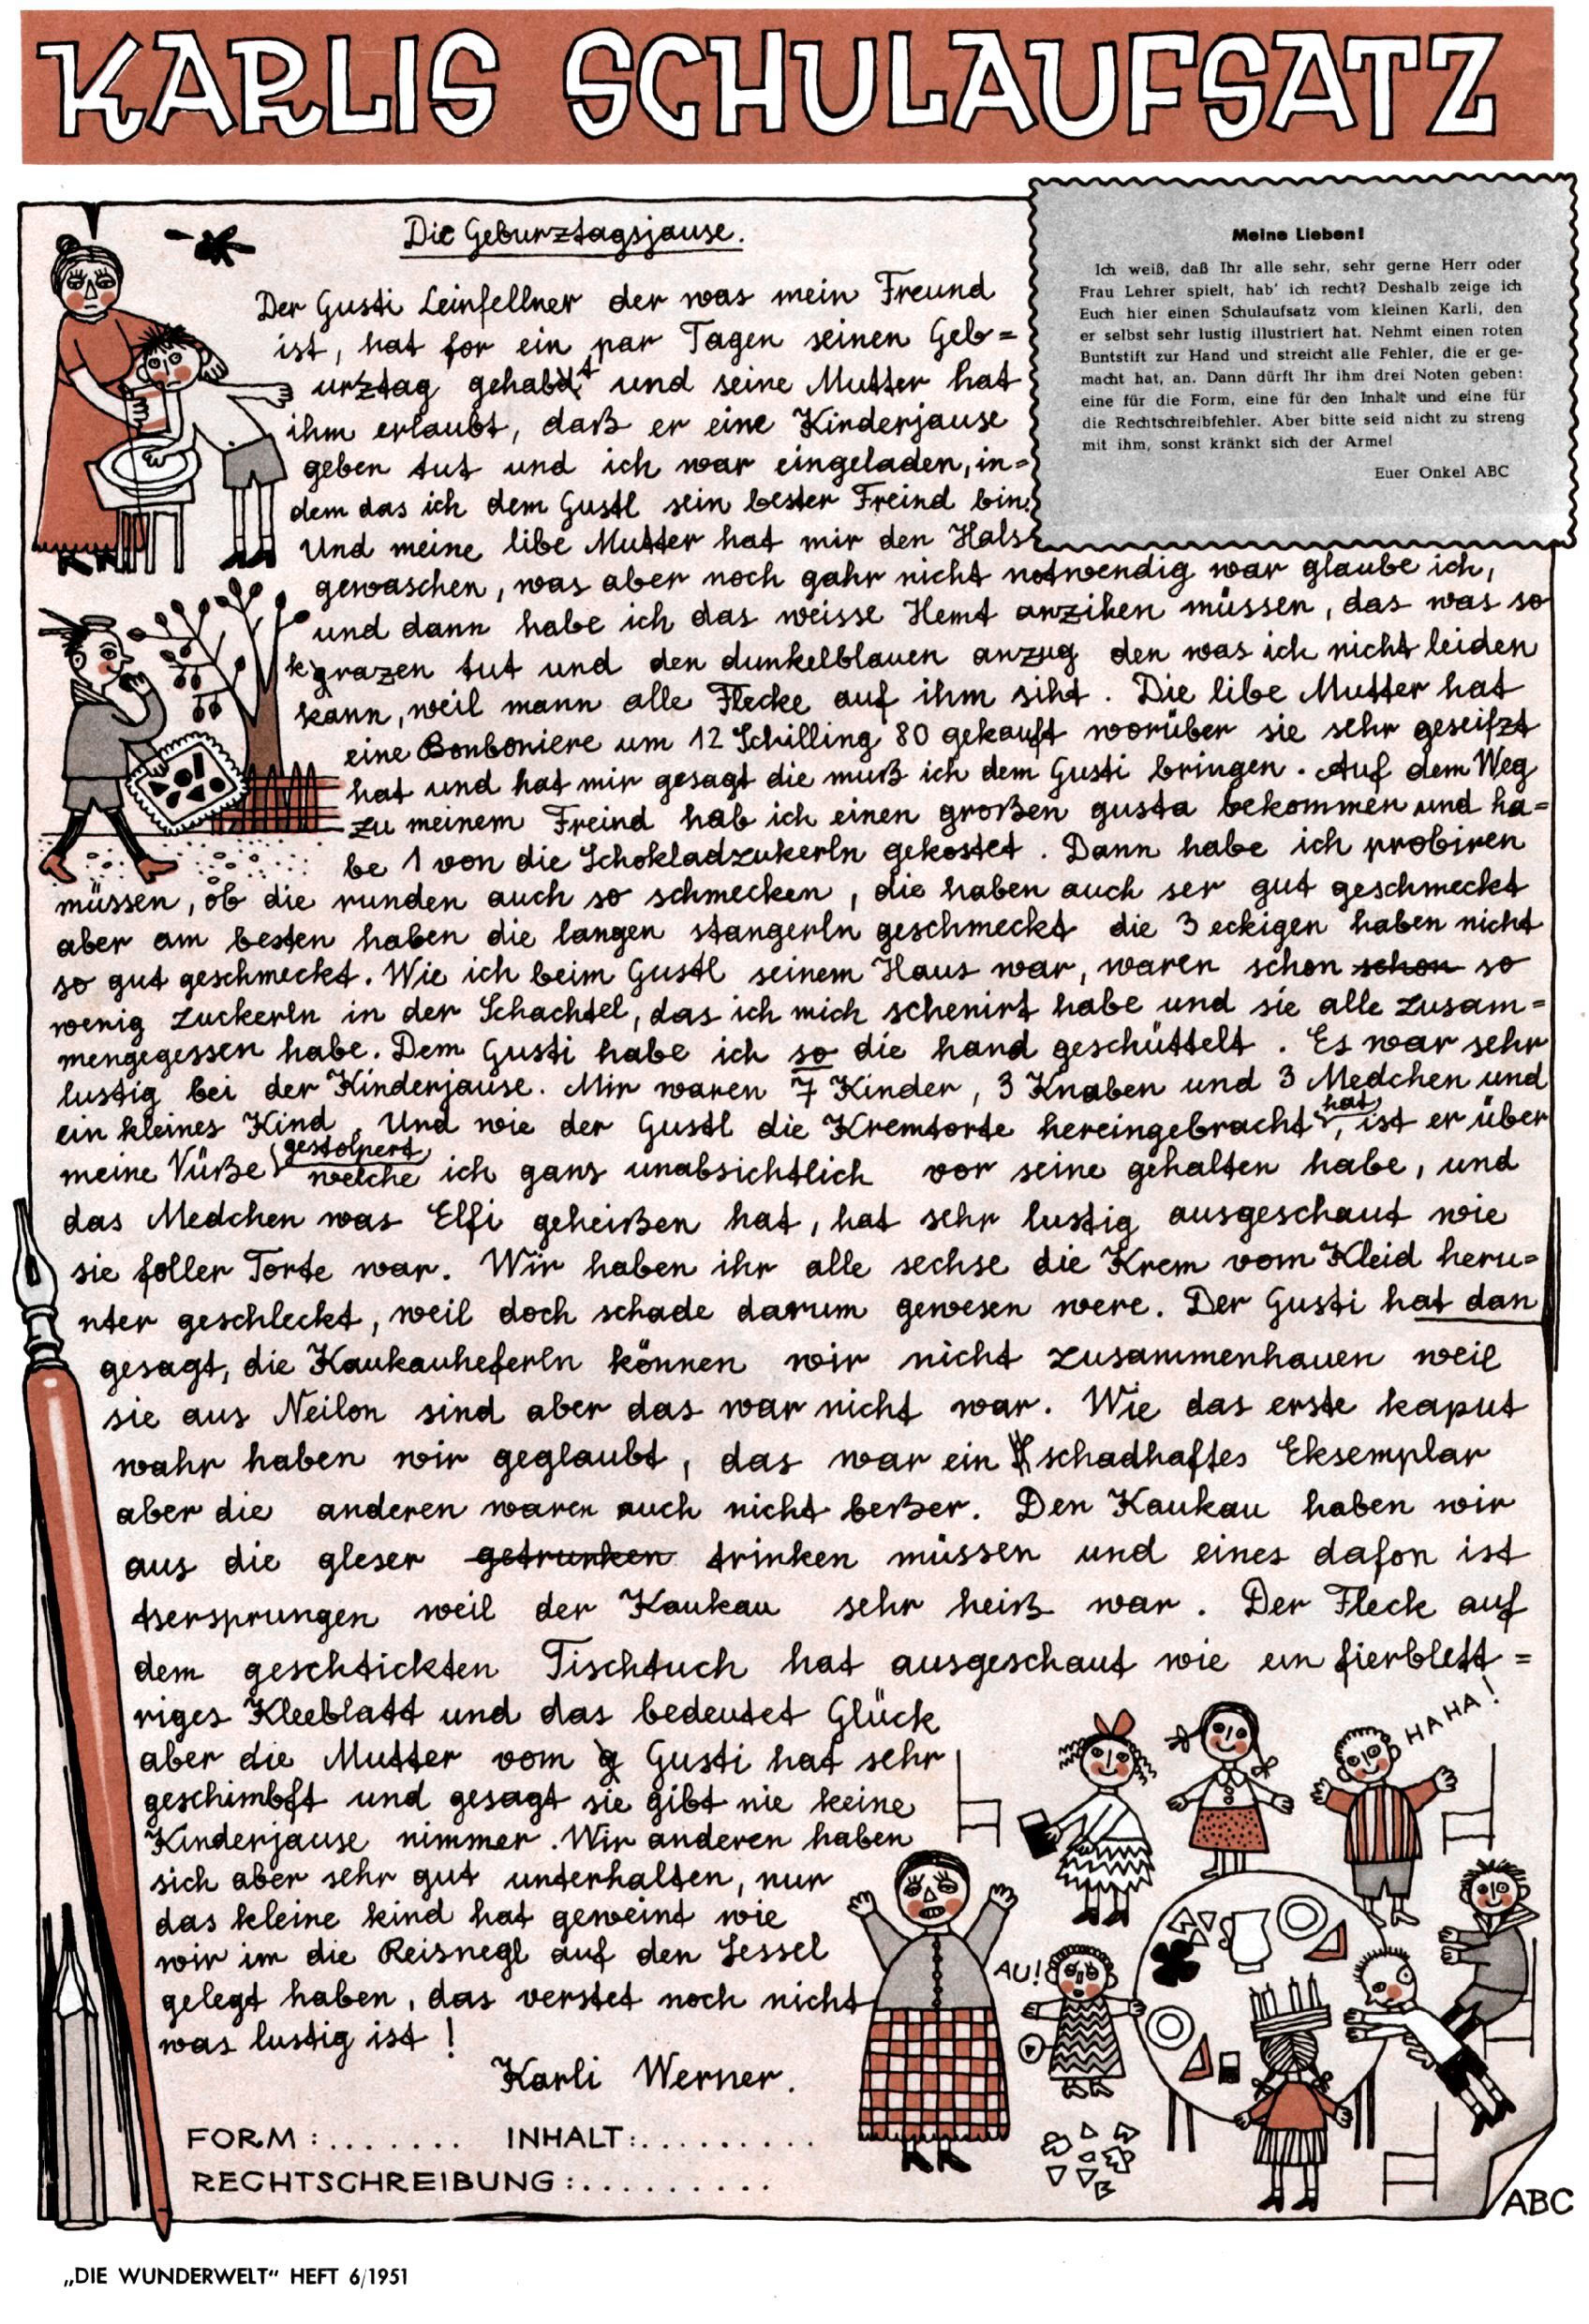 KARLIS SCHULAUFSATZ
Meine Lieben!
Ich weiß, daß Ihr alle sehr, sehr gerne Herr oder
Frau Lehrer spielt, hab' ich recht? Deshalb zeige ich
Euch hier einen Schulaufsatz vom kleinen Karli, den
er selbst sehr lustig illustriert hat. Nehmt einen roten
Buntstift zur Hand und streicht alle Fehler, die er ge-
macht hat, an. Dann dürft Ihr ihm drei Noten geben:
eine für die Form, eine für den Inhalt und eine für
die Rechtschreibfehler. Aber bitte seid nicht zu streng
mit ihm, sonst kränkt sich der Arme!
Euer Onkel ABC
Die Geburztagsjause.
Der Gusti Leinfellner der was mein Freund
ist, hat for ein par Tagen seinen Geb=
urztag gehabt und seine Mutter hat
ihm erlaubt, daß er eine Kinderjause
geben tut und ich war eingeladen, in=
dem das ich dem Gustl sein bester Freind bin.
Und meine libe Mutter hat mir den Hals
gewaschen, was aber noch gahr nicht notwendig war glaube ich,
und dann habe ich das weisse Hemt anzihen müssen, das was so
kgrazen tut und den dunkelblauen anzug den was ich nicht leiden
kann, weil mann alle Flecke auf ihm siht. Die libe Mutter hat
eine Bonboniere um 12 Schilling 80 gekauft worüber sie sehr geseifzt
hat und hat mir gesagt die muß ich dem Gusti bringen. Auf dem Weg
zu meinem Freind hab ich einen großen gusta bekommen und ha=
be 1 von die Schokladzukerln gekostet. Dann habe ich probiren
müssen, ob die runden auch so schmecken, die haben auch ser gut geschmeckt
aber am besten haben die langen stangerln geschmeckt die 3 eckigen haben nicht
so gut geschmeckt. Wie ich beim Gustl seinem Haus war, waren schon schon so
wenig Zuckerln in der Schachtel, das ich mich schenirt habe und sie alle zusam=
mengegessen habe. Dem Gusti habe ich so die hand geschüttelt. Es war sehr
lustig bei der Kinderjause. Mir waren 7 Kinder, 3 Knaben und 3 Medchen und
ein kleines Kind. Und wie der Gustl die Kremtorte hereingebracht hat, ist er über
meine Vüße gestolpert welche ich ganz unabsichtlich vor seine gehalten habe, und
das Medchen was Elfi geheißen hat, hat sehr lustig ausgeschaut wie
sie foller Torte war. Wir haben ihr alle sechse die Krem vom Kleid heru=
nter geschleckt, weil doch schade darum gewesen were. Der Gusti hat dan
gesagt, die Kaukauheferln können wir nicht zusammenhauen weil
sie aus Neilon sind aber das war nicht war. Wie das erste kaput
wahr haben wir geglaubt, das war ein schadhaftes Eksemplar
aber die anderen waren auch nicht beßer. Den Kaukau haben wir
aus die gleser getrunken trinken müssen und eines dafon ist
tsersprungen weil der Kaukau sehr heiß war. Der Fleck auf
dem geschtickten Tischtuch hat ausgeschaut wie ein fierblett=
riges Kleeblatt und das bedeutet Glück
aber die Mutter vom g Gusti hat sehr
geschimbft und gesagt sie gibt nie keine
Kinderjause nimmer. Wir anderen haben
sich aber sehr gut unterhalten, nur
das kleine kind hat geweint wie
wir im die Reisnegl auf den Sessel
gelegt haben, das verstet noch nicht
was lustig ist!
Karli Werner.
HAHA!
AU!
FORM: ....... INHALT: ..........
RECHTSCHREIBUNG: ..........
ABC
„DIE WUNDERWELT“ HEFT 6/1951